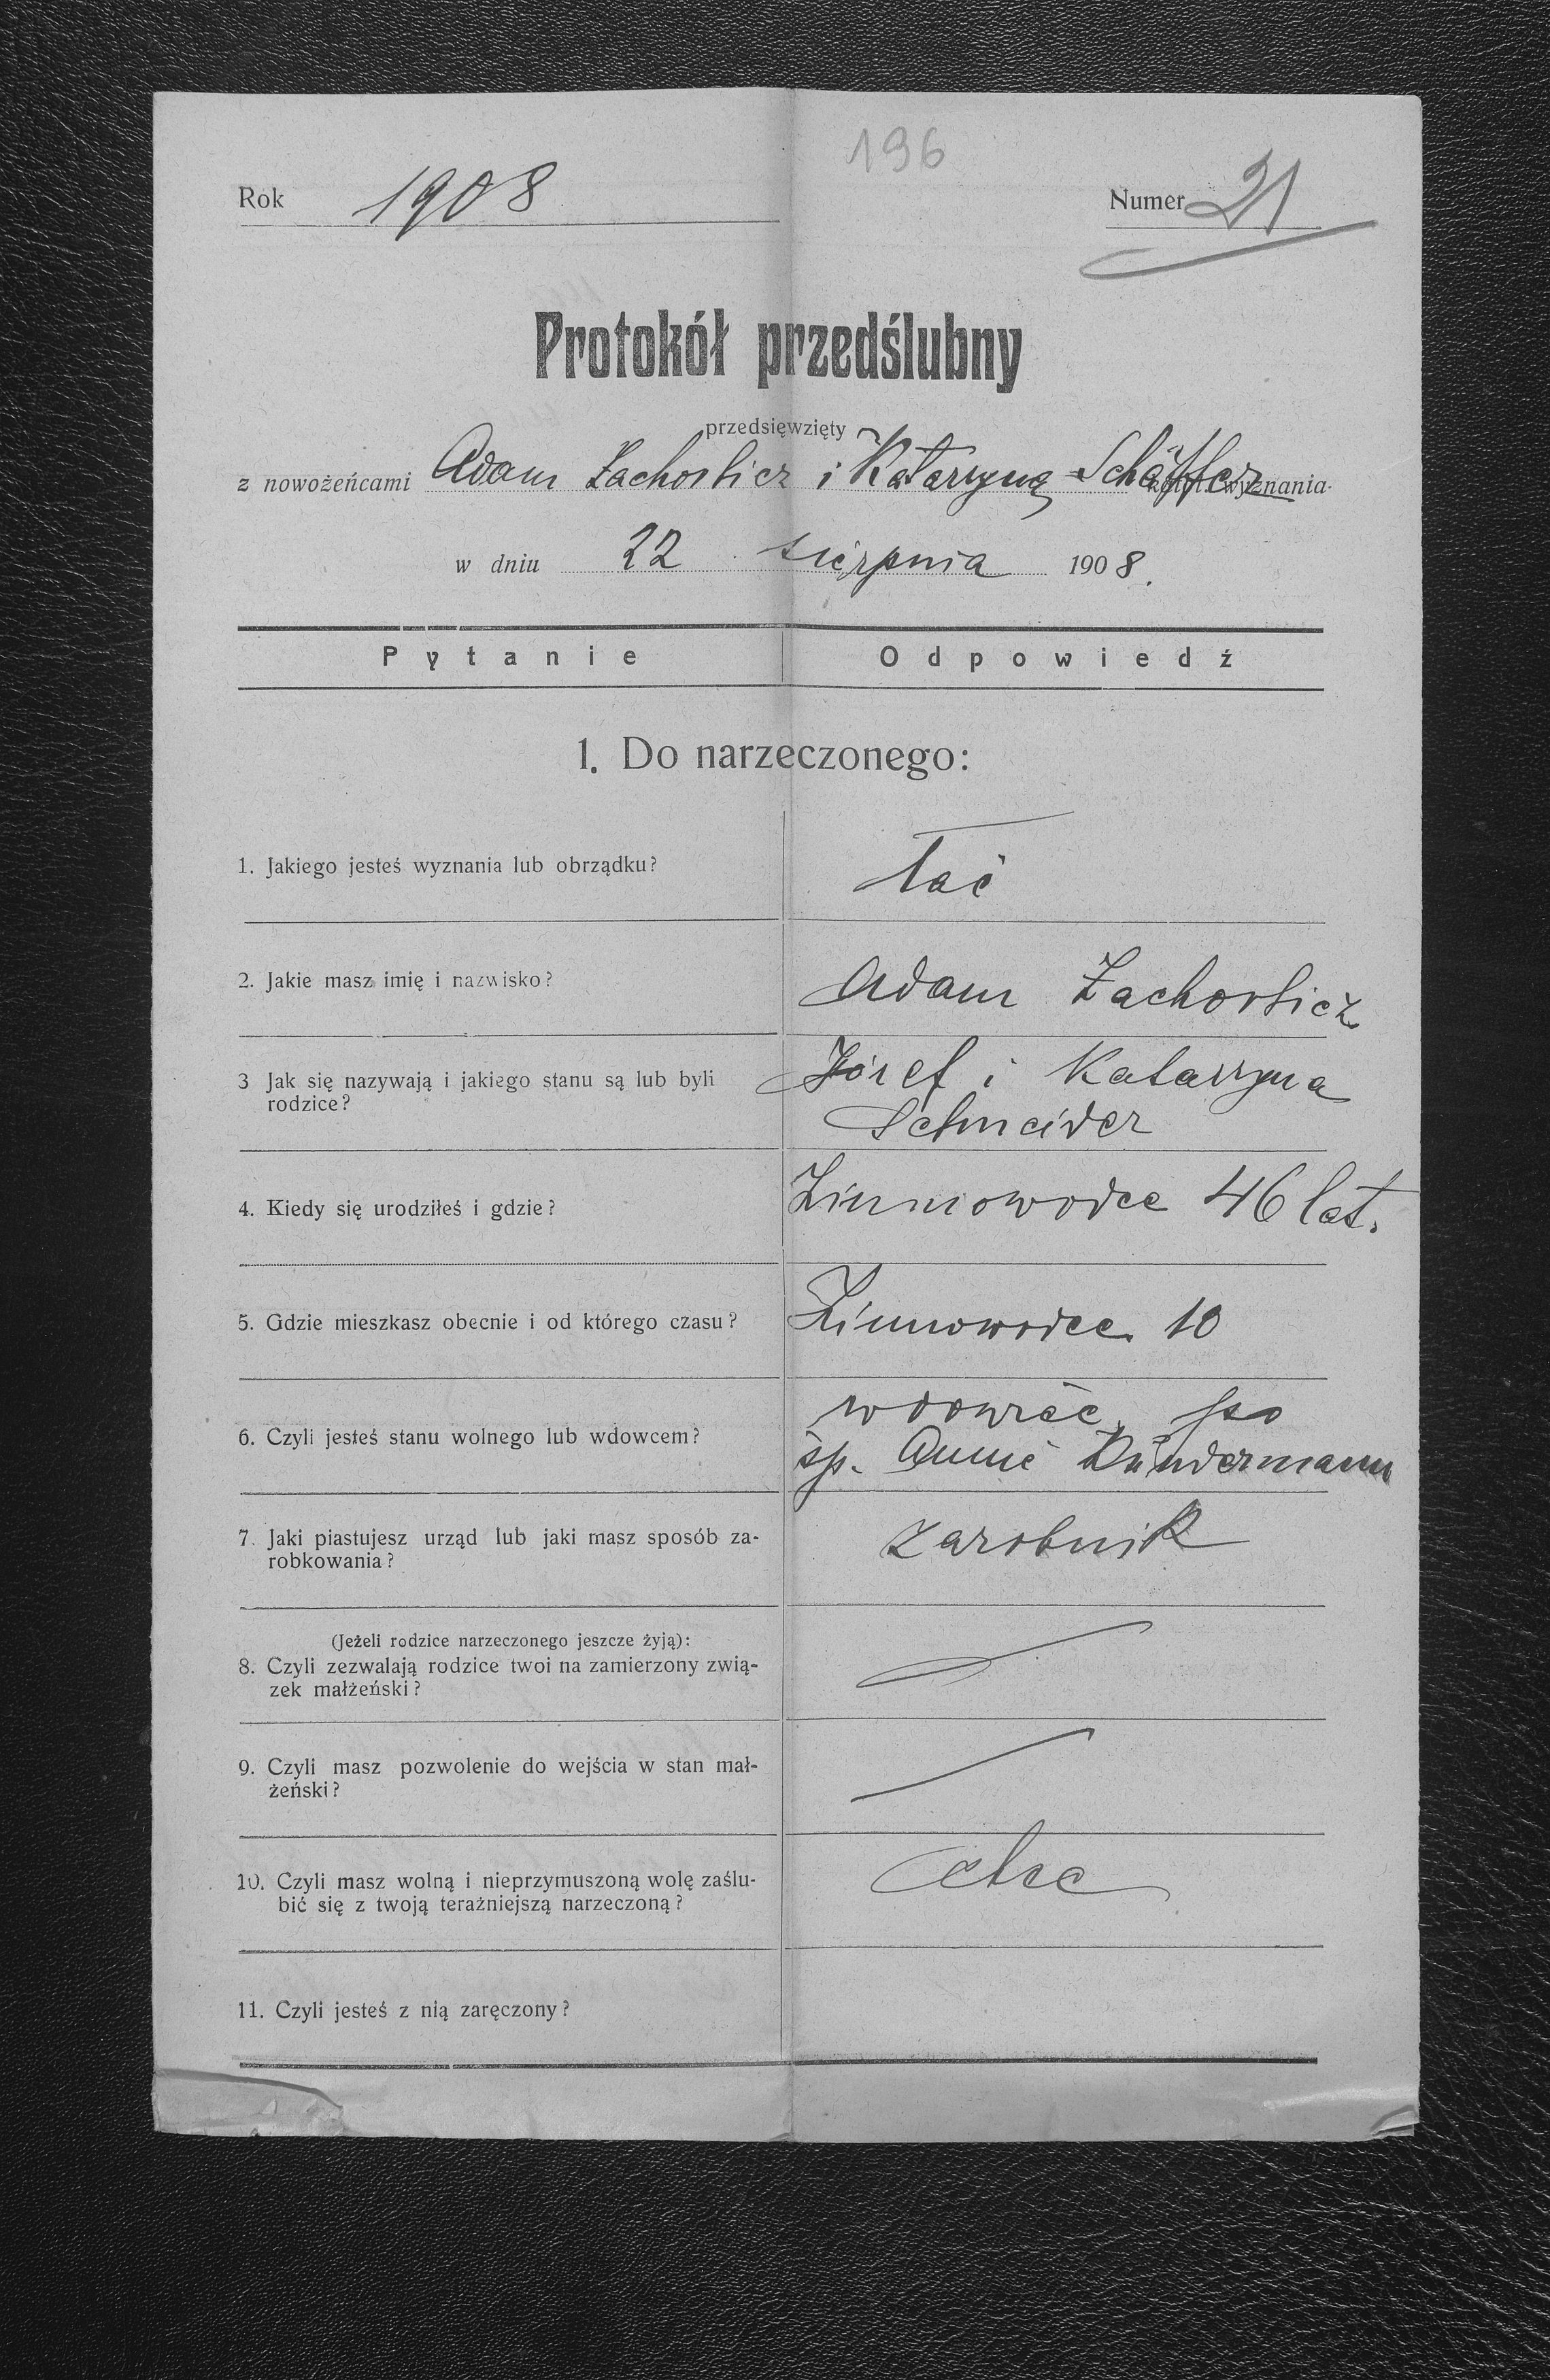 196
Rok 1908 Numer 21
Protokół przedślubny
przedsięwzięty
z nowożeńcami Adam Zachorbicz i Katarzyną Schäffer wyznania
w dniu 22 sierpnia 1908.
Pytanie Odpowiedź
1. Do narzeczonego:
1. Jakiego jesteś wyznania lub obrządku? łać
2. Jakie masz imię i nazwisko? Adam Zachorbicz
3 Jak się nazywają i jakiego stanu są lub byli Józef i Katarzyna
rodzice? Schneider
4. Kiedy się urodziłeś i gdzie? Zimnowodce 46 lat.
5. Gdzie mieszkasz obecnie i od którego czasu? Zimnowodce 10
6. Czyli jesteś stanu wolnego lub wdowcem? wdowiec po
śp. Annie Dündermann
7. Jaki piastujesz urząd lub jaki masz sposób za-
robkowania? zarobnik
(Jeżeli rodzice narzeczonego jeszcze żyją):
8. Czyli zezwalają rodzice twoi na zamierzony zwią-
zek małżeński?
9. Czyli masz pozwolenie do wejścia w stan mał-
żeński?
10. Czyli masz wolną i nieprzymuszoną wolę zaślu- chce
bić się z twoją teraźniejszą narzeczoną?
11. Czyli jesteś z nią zaręczony?